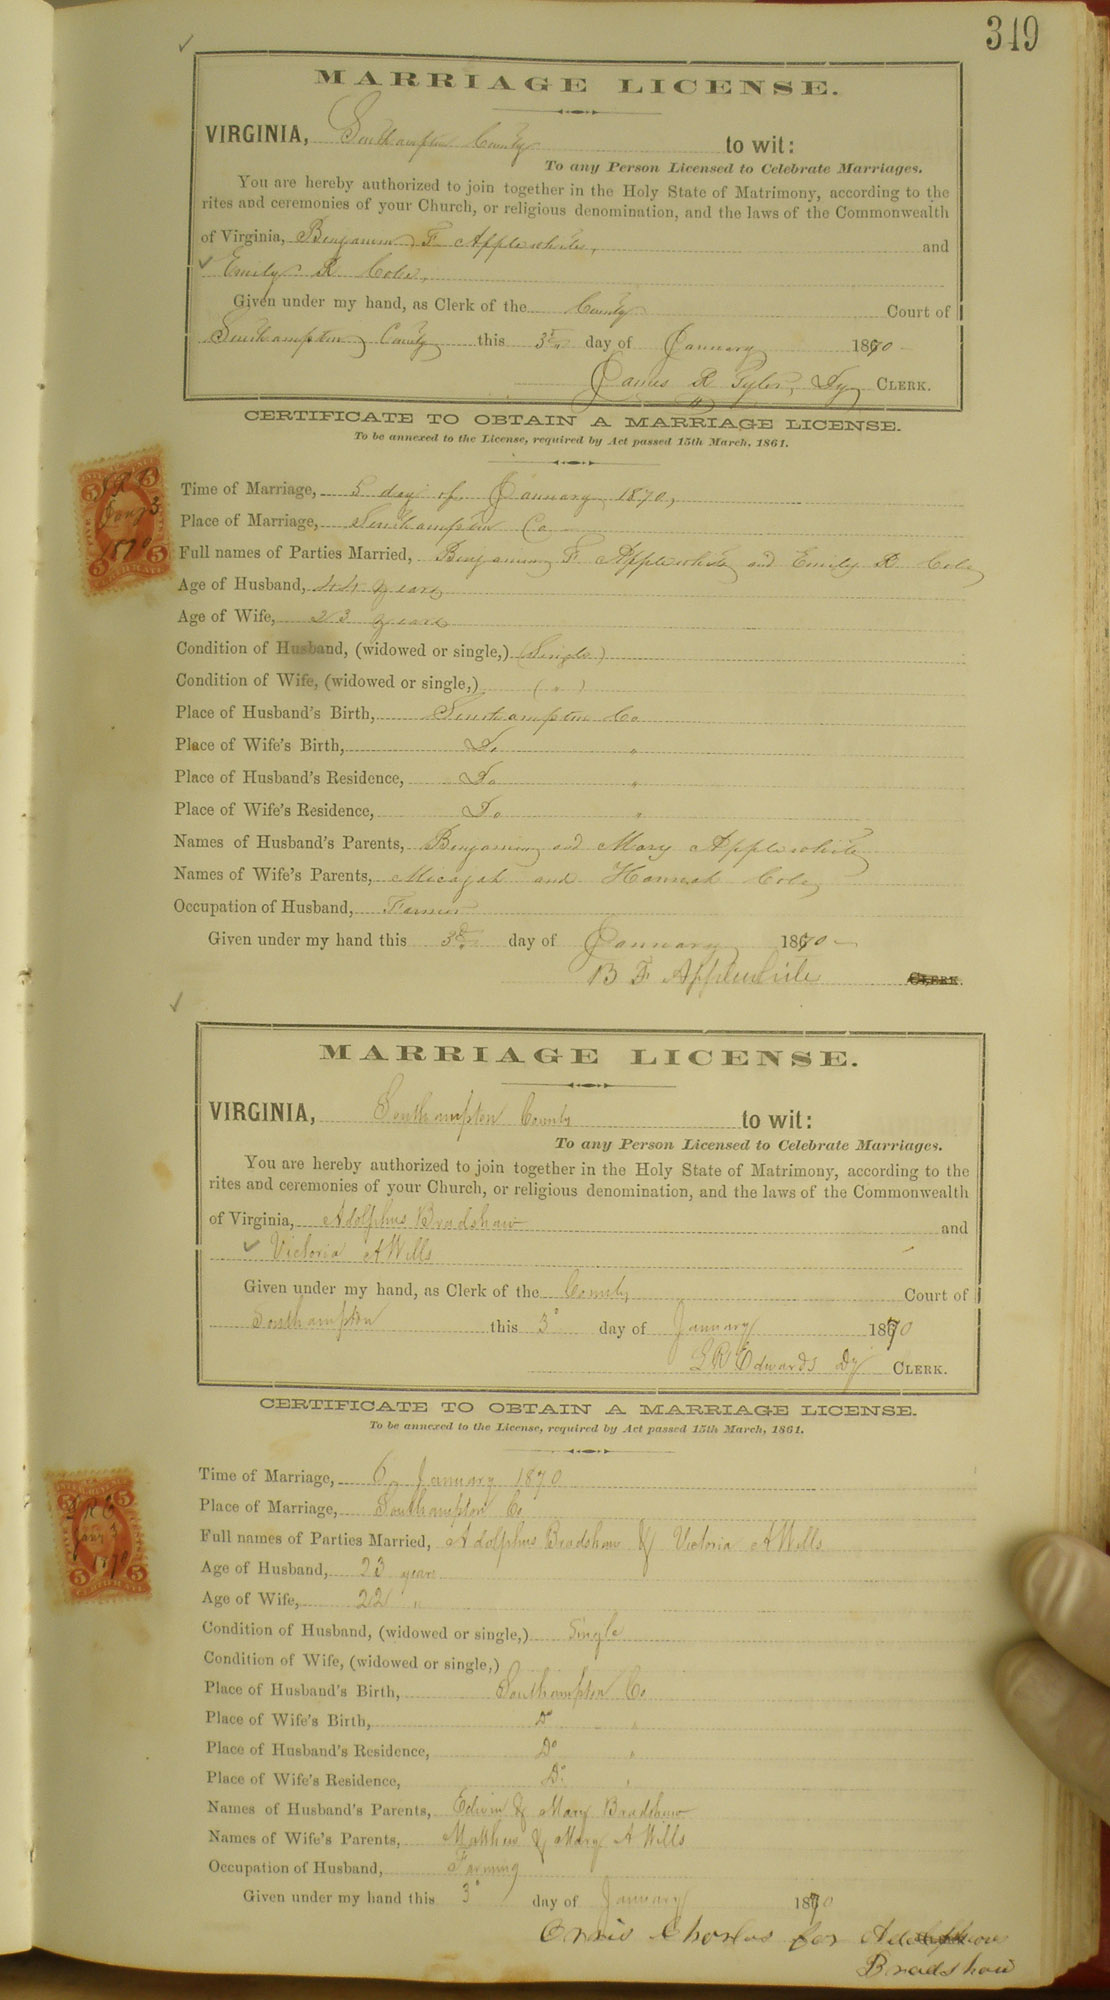 349
MARRIAGE LICENSE.
VIRGINIA, Southampton County to wit:
To any Person Licensed to Celebrate Marriages.
You are hereby authorized to join together in the Holy State of Matrimony, according to the
rites and ceremonies of your Church, or religious denomination, and the laws of the Commonwealth
of Virginia, Benjamin F Applewhite, and
Emily R Cobb,
Given under my hand, as Clerk of the County Court of
Southampton County this 3rd day of January 1870
James R Tyler, Dy CLERK.
CERTIFICATE TO OBTAIN A MARRIAGE LICENSE.
To be annexed to the License, required by Act passed 15th March, 1861.
Time of Marriage, 5 day of January 1870,
Place of Marriage, Southampton Co
Full names of Parties Married, Benjamin F Applewhite and Emily R Cobb
Age of Husband, 44 years
Age of Wife, 23 years
Condition of Husband, (widowed or single,) (Single)
Condition of Wife, (widowed or single,) ( " )
Place of Husband's Birth, Southampton Co
Place of Wife's Birth, Do "
Place of Husband's Residence, Do "
Place of Wife's Residence, Do "
Names of Husband's Parents, Benjamin and Mary Applewhite
Names of Wife's Parents, Micajah and Hannah Cobb
Occupation of Husband, Farmer
Given under my hand this 3rd day of January 1870
B F Applewhite CLERK.
5 5
Jany 3
1870
5 5
CERTIFICATE
MARRIAGE LICENSE.
VIRGINIA, Southampton County to wit:
To any Person Licensed to Celebrate Marriages.
You are hereby authorized to join together in the Holy State of Matrimony, according to the
rites and ceremonies of your Church, or religious denomination, and the laws of the Commonwealth
of Virginia, Adolphus Bradshaw and
Victoria A Wills
Given under my hand, as Clerk of the County Court of
Southampton this 3d day of January 1870
L R Edwards Dy CLERK.
CERTIFICATE TO OBTAIN A MARRIAGE LICENSE.
To be annexed to the License, required by Act passed 15th March, 1861.
Time of Marriage, 6 January 1870
Place of Marriage, Southampton Co
Full names of Parties Married, Adolphus Bradshaw & Victoria A Wills
Age of Husband, 23 years
Age of Wife, 22 "
Condition of Husband, (widowed or single,) Single
Condition of Wife, (widowed or single,)
Place of Husband's Birth, Southampton Co
Place of Wife's Birth, Do "
Place of Husband's Residence, Do "
Place of Wife's Residence, Do "
Names of Husband's Parents, Edwin & Mary Bradshaw
Names of Wife's Parents, Matthew & Mary A Wills
Occupation of Husband, Farming
Given under my hand this 3d day of January 1870
for
Bradshaw
5 5
L R E
Jany 3
1870
5 5
CERTIFICATE